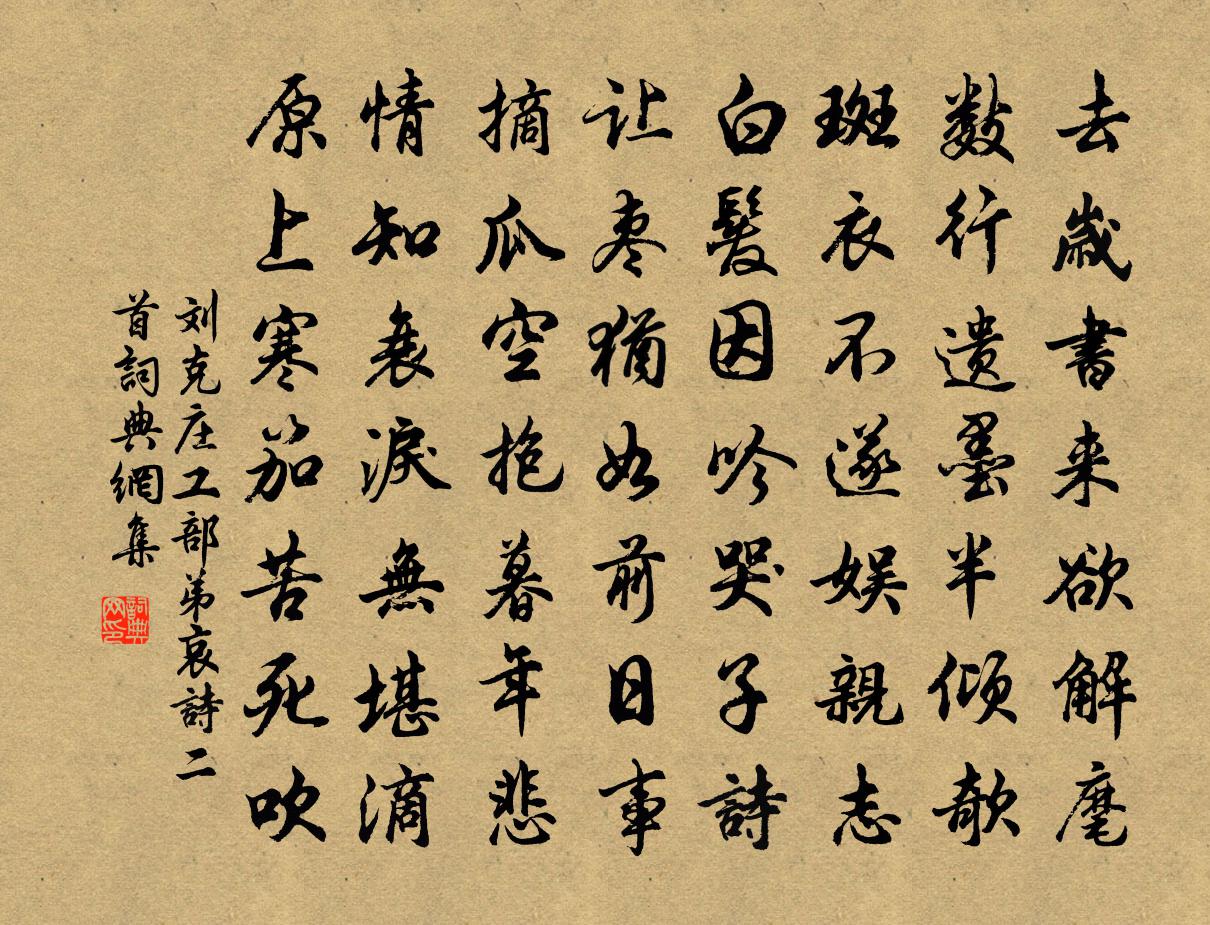 去歲書来欲解麾
数行遗墨半倾欹
斑衣不遂娱親志
白髮因吟哭子詩
让枣猶如前日事
摘瓜空抱暮年悲
情知衰淚無堪滴
原上寒笳苦死吹
刘克庄工部弟哀詩二
首詞典網集
詞典
网印